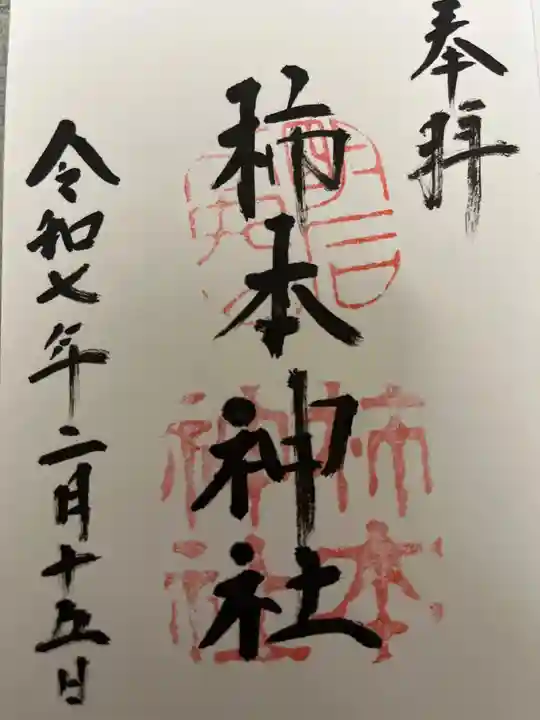 奉拝
柿本神社
柿本
神社
令和七年二月十五日